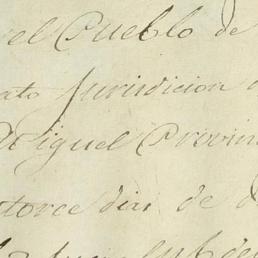 el Pueblo de
ato Jurisdicion
Miguel Provin
atorce dias de